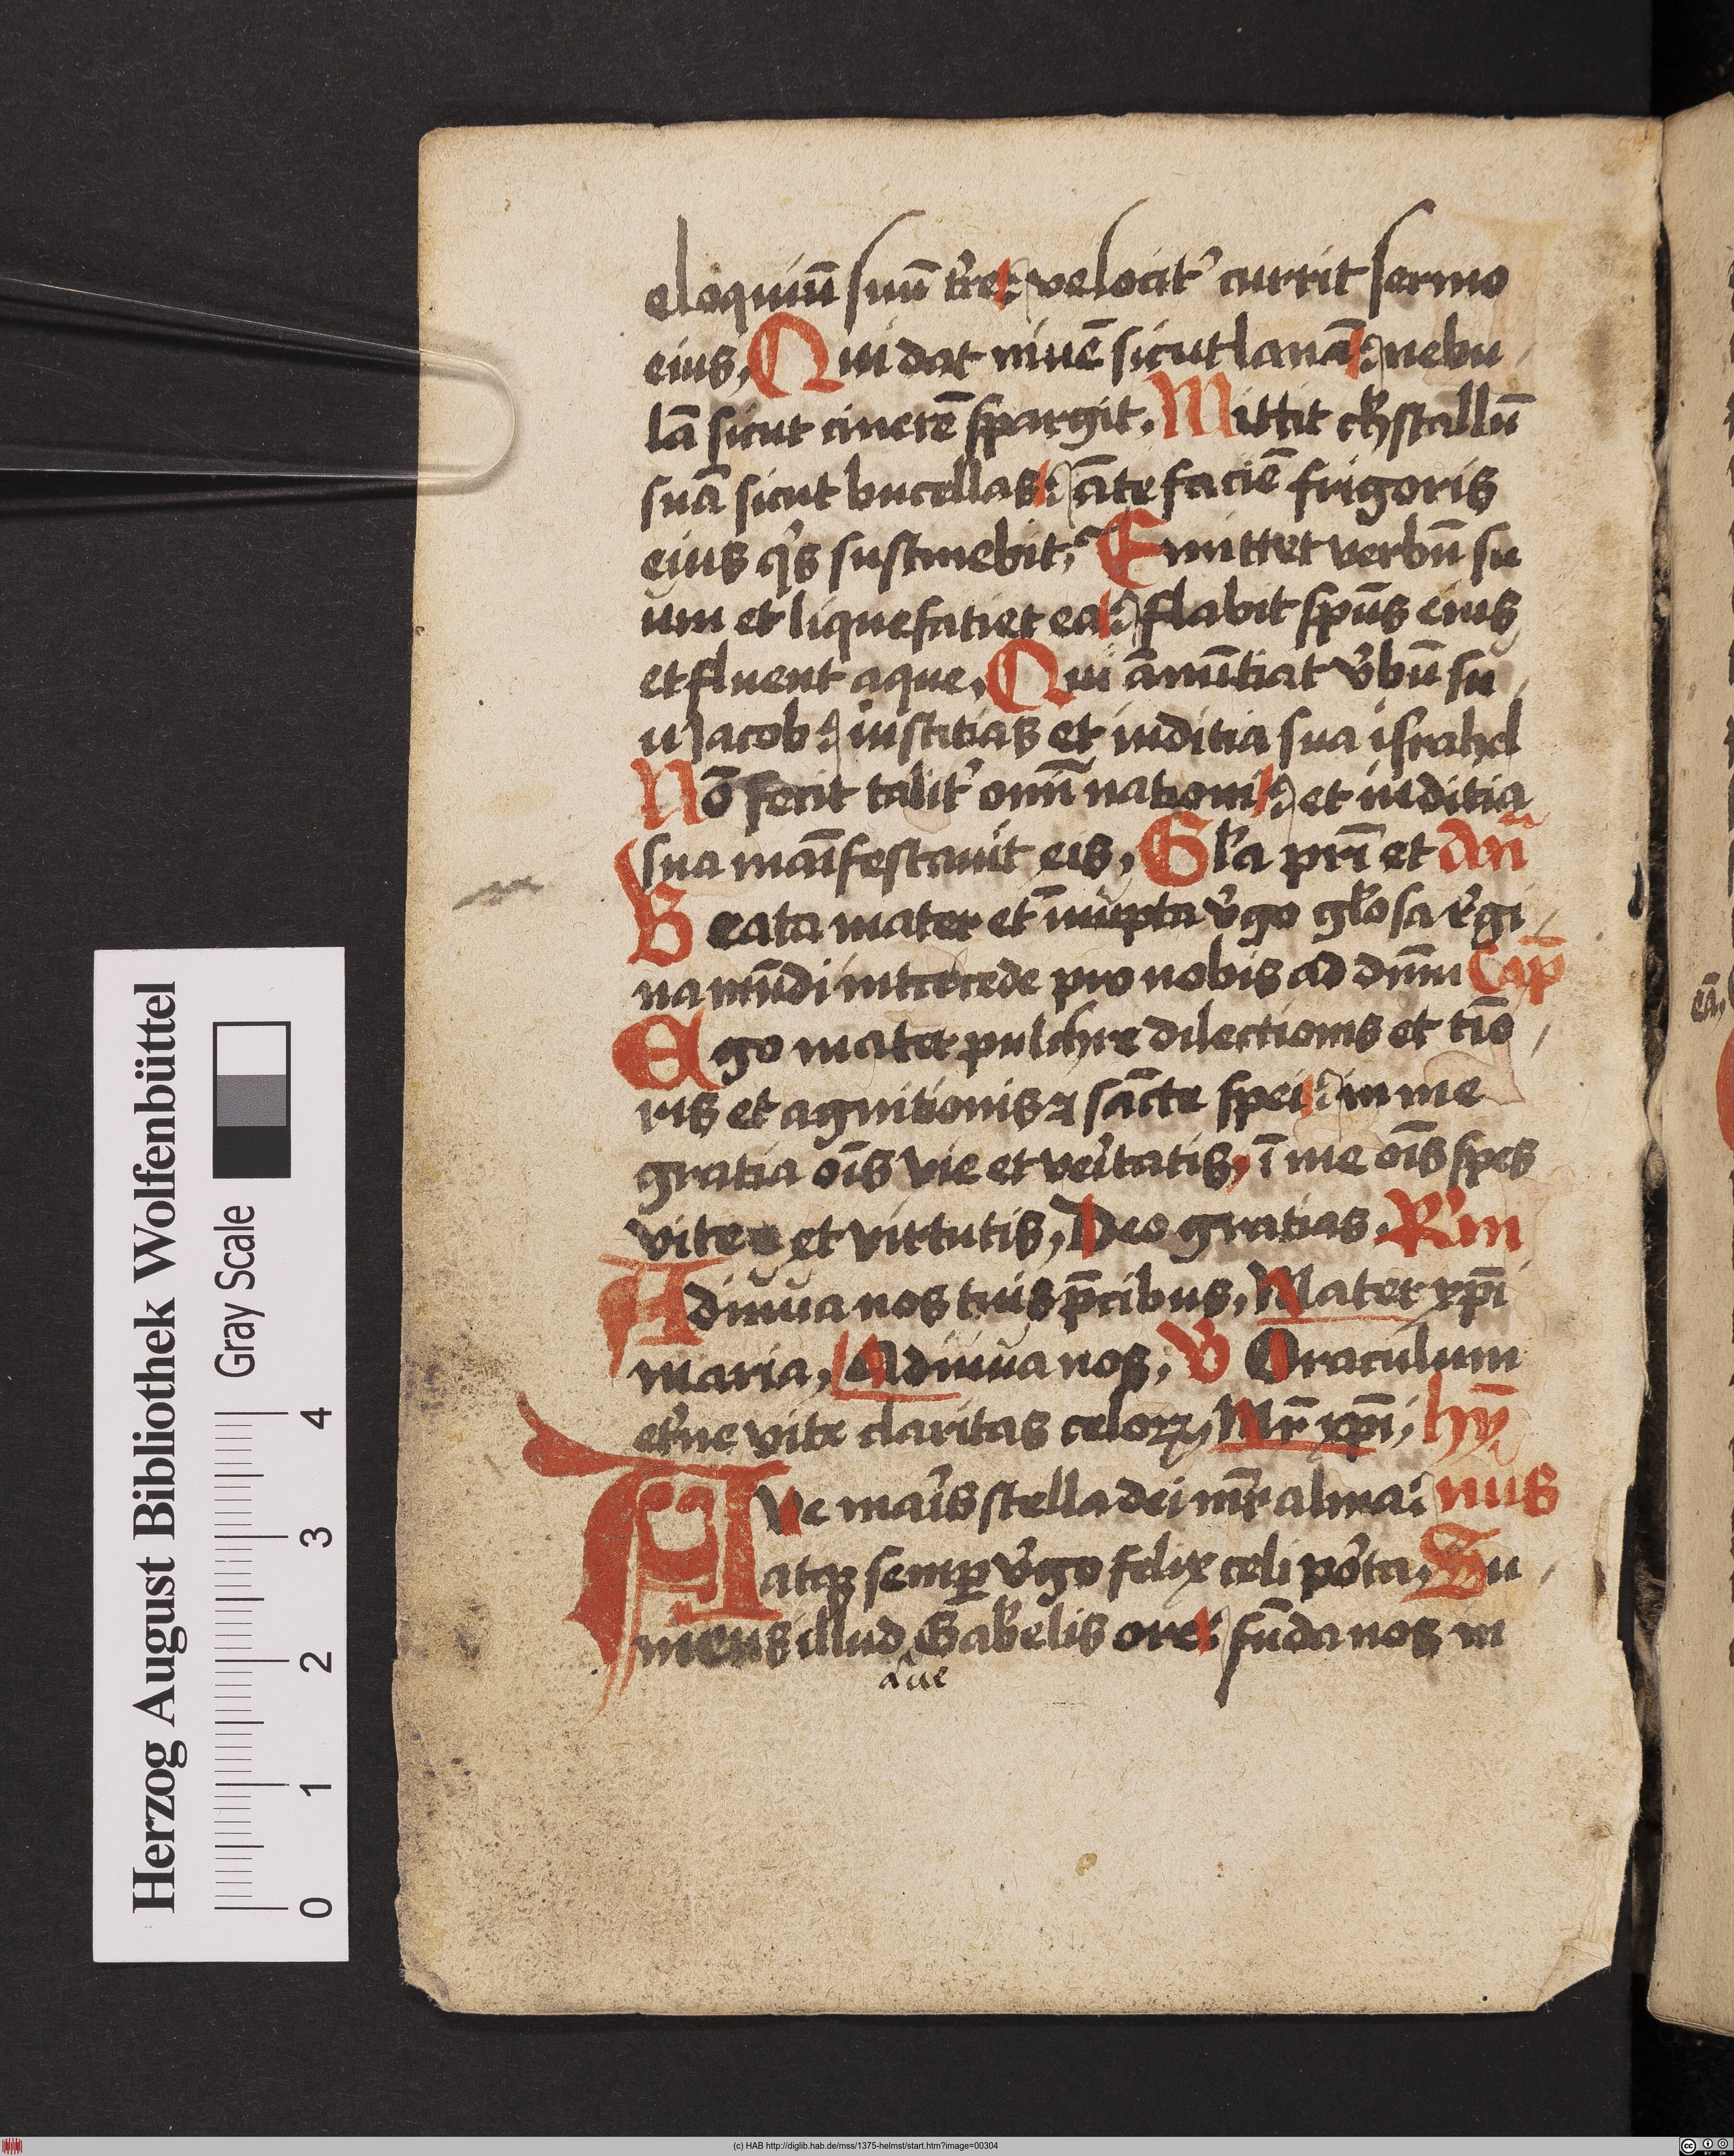 eloquiū suū tr̄re: velocit᾽ currit sermo
eius, Qui dat niuē sicut lanā: nebu
lā sicut cinerē spargit. Mittit c᾽stallū
suā sicut bucellas: āte faciē frigoris
eius q᾽s sustinebit, Emittet verbū su
um et liquefatiet ea: flabit sp̄us eius
et fluent aque, Qui ānūtiat v᾽bū su
ū Jacob: iustitias et iuditia sua israhel
Nō fecit talit᾽ omī nationi: et iuditia
sua māifestauit eis, Gl᾽a pr̄i et Añ
Beata mater et īnūpta v᾽go gl᾽osa r᾽gi
na mūdi intercede pro nobis ad dn̄m Cap̄
Ego mater pulchre dilectionis et tīo
ris et agnitionis ⁊ sācte spei: in me
gratia oīs vie et ve᾽itatis, ī me oīs spes
vite et virtutis, Deo gratias. R᾽m
Adiuua nos tuis p̄cibus, Mater xp̄i
maria, Adiuua nos, V Oraculum
et᾽ne vite claritas celoꝝ, Mr̄ xp̄i, hȳ
Ave ma᾽is stella dei mr̄ alma: nus
atqꝫ semꝑ v᾽go felix celi po᾽ta, Su
mens illud Gab᾽elis ore: fūda nos in
aue
Herzog August Bibliothek Wolfenbüttel
Gray Scale
0 1 2 3 4
eā,
(c) HAB http://diglib.hab.de/mss/1375-helmst/start.htm?image=00304